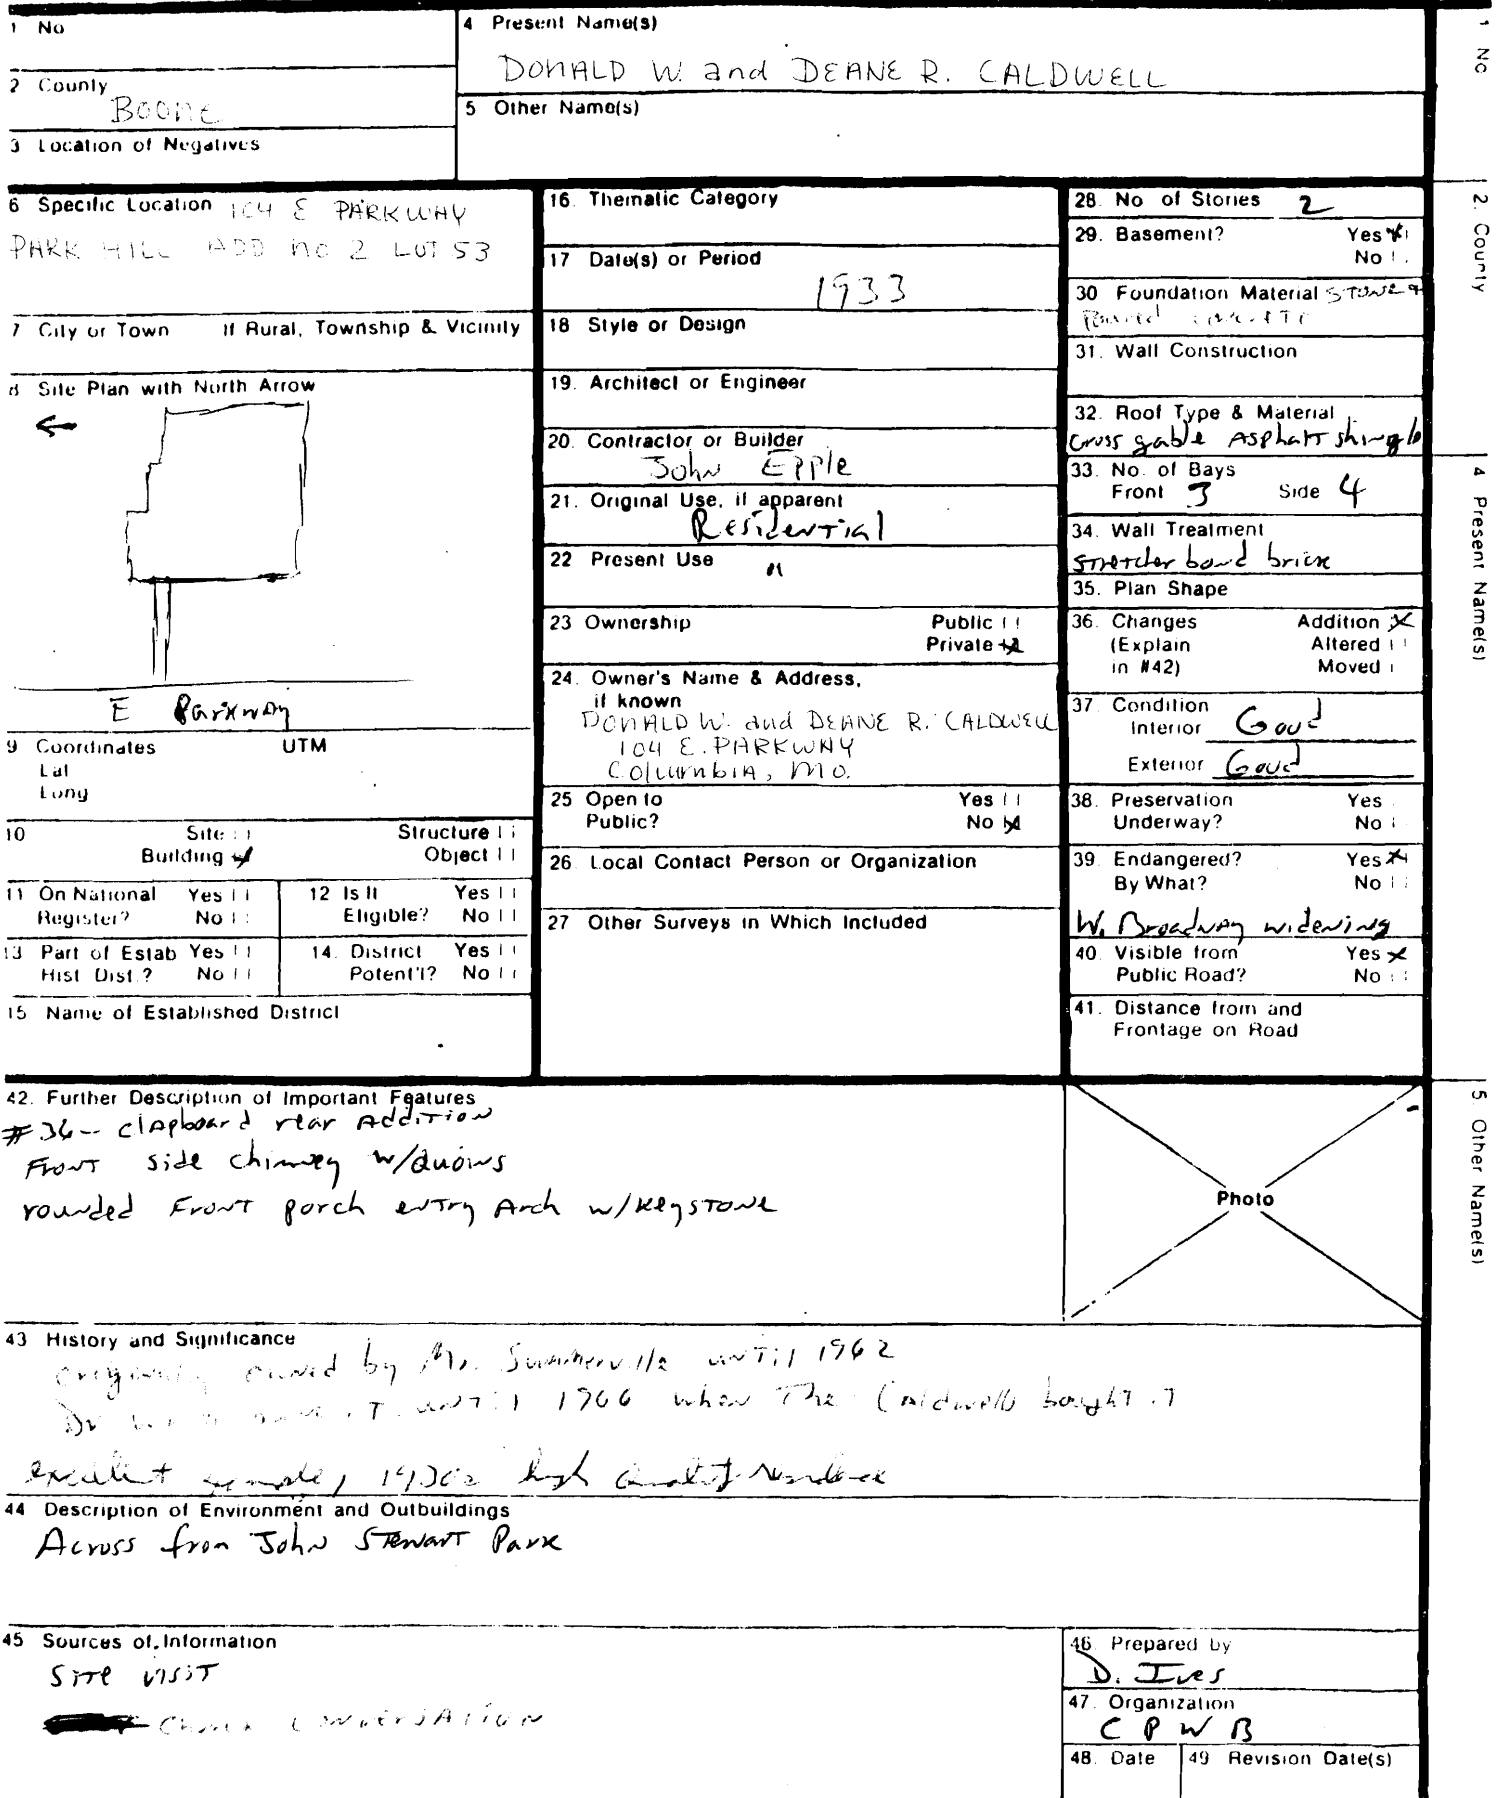 1 No
4 Present Name(s)
DONALD W. and DEANE R. CALDWELL
2 County
BOONE
5 Other Name(s)
3 Location of Negatives
6 Specific Location 104 E PARKWAY
PARK HILL ADD no 2 LOT 53
7 City or Town If Rural, Township & Vicinity
8 Site Plan with North Arrow
E Parkway
9 Coordinates UTM
Lat
Long
10 Site Structure
Building Object
11 On National Register? Yes No
12 Is It Eligible? Yes No
13 Part of Estab Hist. Dist.? Yes No
14. District Potent'l? Yes No
15 Name of Established District
16. Thematic Category
17 Date(s) or Period
1933
18 Style or Design
19. Architect or Engineer
20. Contractor or Builder
John Epple
21. Original Use, if apparent
Residential
22 Present Use "
23 Ownership Public
Private
24. Owner's Name & Address,
if known
DONALD W. and DEANE R. CALDWELL
104 E. PARKWAY
Columbia, Mo.
25 Open to Yes
Public? No
26. Local Contact Person or Organization
27 Other Surveys in Which Included
28. No of Stories 2
29. Basement? Yes
No
30 Foundation Material STONE &
Poured concrete
31. Wall Construction
32. Roof Type & Material
cross gable Asphalt shingle
33. No. of Bays
Front 3 Side 4
34. Wall Treatment
stretcher bond brick
35. Plan Shape
36. Changes Addition
(Explain Altered
in #42) Moved
37. Condition
Interior Good
Exterior Good
38. Preservation Yes
Underway? No
39. Endangered? Yes
By What? No
W. Broadway widening
40. Visible from Yes
Public Road? No
41. Distance from and
Frontage on Road
42. Further Description of Important Features
#36-- clapboard rear Addition
Front side chimney w/quoins
rounded Front porch entry Arch w/keystone
Photo
43 History and Significance
originally owned by Mr. Summerville until 1962
Dr until 1966 when The Caldwells bought it
excellent example, 1930s high quality residence
44 Description of Environment and Outbuildings
Across from John Stewart Park
45 Sources of Information
Site visit
conversation
46. Prepared by
D. Ives
47. Organization
C P W B
48. Date 49 Revision Date(s)
1 No
2. County
4 Present Name(s)
5 Other Name(s)